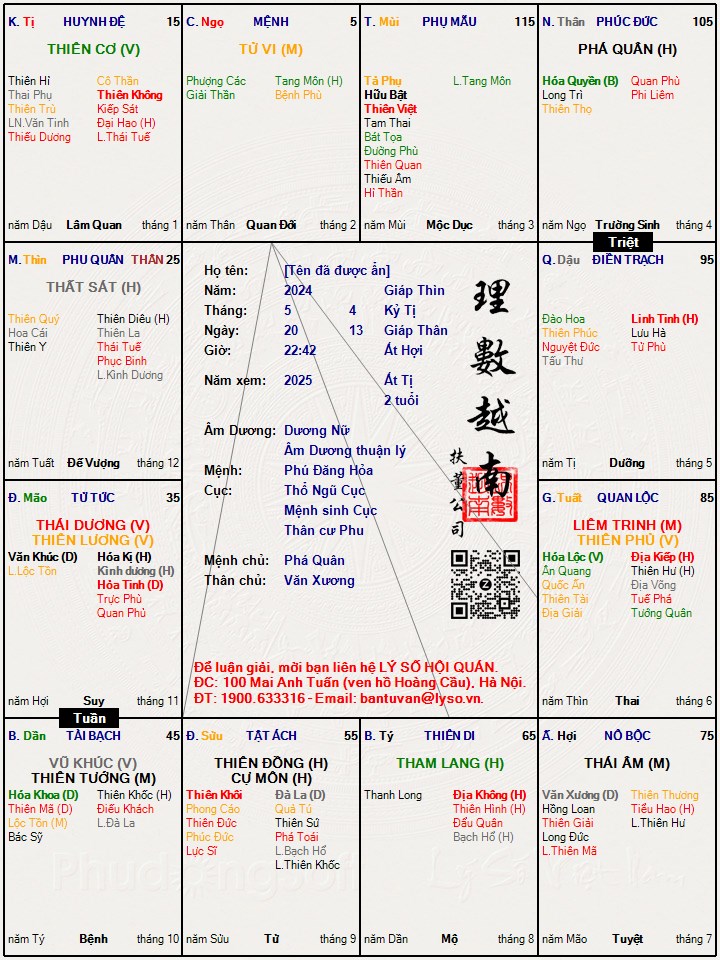 K. Tị HUYNH ĐỆ 15
THIÊN CƠ (V)
Thiên Hỉ Cô Thần
Thai Phụ Thiên Không
Thiên Trù Kiếp Sát
LN.Văn Tinh Đại Hao (H)
Thiếu Dương L.Thái Tuế
năm Dậu Lâm Quan tháng 1
C. Ngọ MỆNH 5
TỬ VI (M)
Phượng Các Tang Môn (H)
Giải Thần Bệnh Phù
năm Thân Quan Đới tháng 2
T. Mùi PHỤ MẪU 115
Tả Phụ L.Tang Môn
Hữu Bật
Thiên Việt
Tam Thai
Bát Tọa
Đường Phù
Thiên Quan
Thiếu Âm
Hỉ Thần
năm Mùi Mộc Dục tháng 3
N. Thân PHÚC ĐỨC 105
PHÁ QUÂN (H)
Hóa Quyền (B) Quan Phù
Long Trì Phi Liêm
Thiên Thọ
năm Ngọ Trường Sinh tháng 4
Triệt
M. Thìn PHU QUÂN THÂN 25
THẤT SÁT (H)
Thiên Quý Thiên Diêu (H)
Hoa Cái Thiên La
Thiên Y Thái Tuế
Phục Binh
L.Kình Dương
năm Tuất Đế Vượng tháng 12
Họ tên: [Tên đã được ẩn]
Năm: 2024 Giáp Thìn
Tháng: 5 4 Kỷ Tị
Ngày: 20 13 Giáp Thân
Giờ: 22:42 Ất Hợi
Năm xem: 2025 Ất Tị
2 tuổi
Âm Dương: Dương Nữ
Âm Dương thuận lý
Mệnh: Phú Đăng Hỏa
Cục: Thổ Ngũ Cục
Mệnh sinh Cục
Thân cư Phu
Mệnh chủ: Phá Quân
Thân chủ: Văn Xương
理數越南
扶董公司
Để luận giải, mời bạn liên hệ LÝ SỐ HỘI QUÁN.
ĐC: 100 Mai Anh Tuấn (ven hồ Hoàng Cầu), Hà Nội.
ĐT: 1900.633316 - Email: bantuvan@lyso.vn.
Q. Dậu ĐIỀN TRẠCH 95
Đào Hoa Linh Tinh (H)
Thiên Phúc Lưu Hà
Nguyệt Đức Tử Phù
Tấu Thư
năm Tị Dưỡng tháng 5
Đ. Mão TỬ TỨC 35
THÁI DƯƠNG (V)
THIÊN LƯƠNG (V)
Văn Khúc (D) Hóa Kị (H)
L.Lộc Tồn Kình dương (H)
Hỏa Tinh (D)
Trực Phù
Quan Phủ
năm Hợi Suy tháng 11
Tuần
G. Tuất QUAN LỘC 85
LIÊM TRINH (M)
THIÊN PHỦ (V)
Hóa Lộc (V) Địa Kiếp (H)
Ân Quang Thiên Hư (H)
Quốc Ấn Địa Võng
Thiên Tài Tuế Phá
Địa Giải Tướng Quân
năm Thìn Thai tháng 6
B. Dần TÀI BẠCH 45
VŨ KHÚC (V)
THIÊN TƯỚNG (M)
Hóa Khoa (D) Thiên Khốc (H)
Thiên Mã (D) Điếu Khách
Lộc Tồn (M) L.Đà La
Bác Sỹ
năm Tý Bệnh tháng 10
Đ. Sửu TẬT ÁCH 55
THIÊN ĐỒNG (H)
CỰ MÔN (H)
Thiên Khôi Đà La (D)
Phong Cáo Quả Tú
Thiên Đức Thiên Sứ
Phúc Đức Phá Toái
Lực Sĩ L.Bạch Hổ
L.Thiên Khốc
năm Sửu Tử tháng 9
B. Tý THIÊN DI 65
THAM LANG (H)
Thanh Long Địa Không (H)
Thiên Hình (H)
Đẩu Quân
Bạch Hổ (H)
năm Dần Mộ tháng 8
Ấ. Hợi NÔ BỘC 75
THÁI ÂM (M)
Văn Xương (D) Thiên Thương
Hồng Loan Tiểu Hao (H)
Thiên Giải L.Thiên Hư
Long Đức
L.Thiên Mã
năm Mão Tuyệt tháng 7